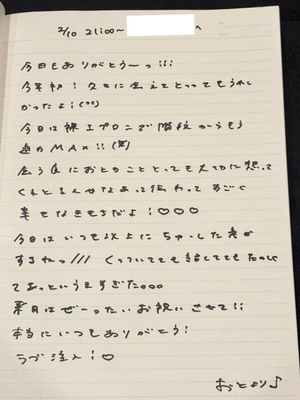 2/10 21:00~ へ
今日もありがとう〜っ!!!
今年初!夕日に会えてとってもうれし
かったよ!(^^)
今日は裸エプロンで階段からもう
MAX!!(笑)
会う度におとのこととっても大切に想って
くれてるんやなあって伝わってすごく
幸せなきもちだよ!♡♡♡
今日はいつも以上にちゅーした気が
するねっ/// くっついてても話してても
てあっというますぎた。。。
来月はぜーったいお祝いさせて!!
本当にいつもありがとう!
ラブ注入!♡
おとより♪